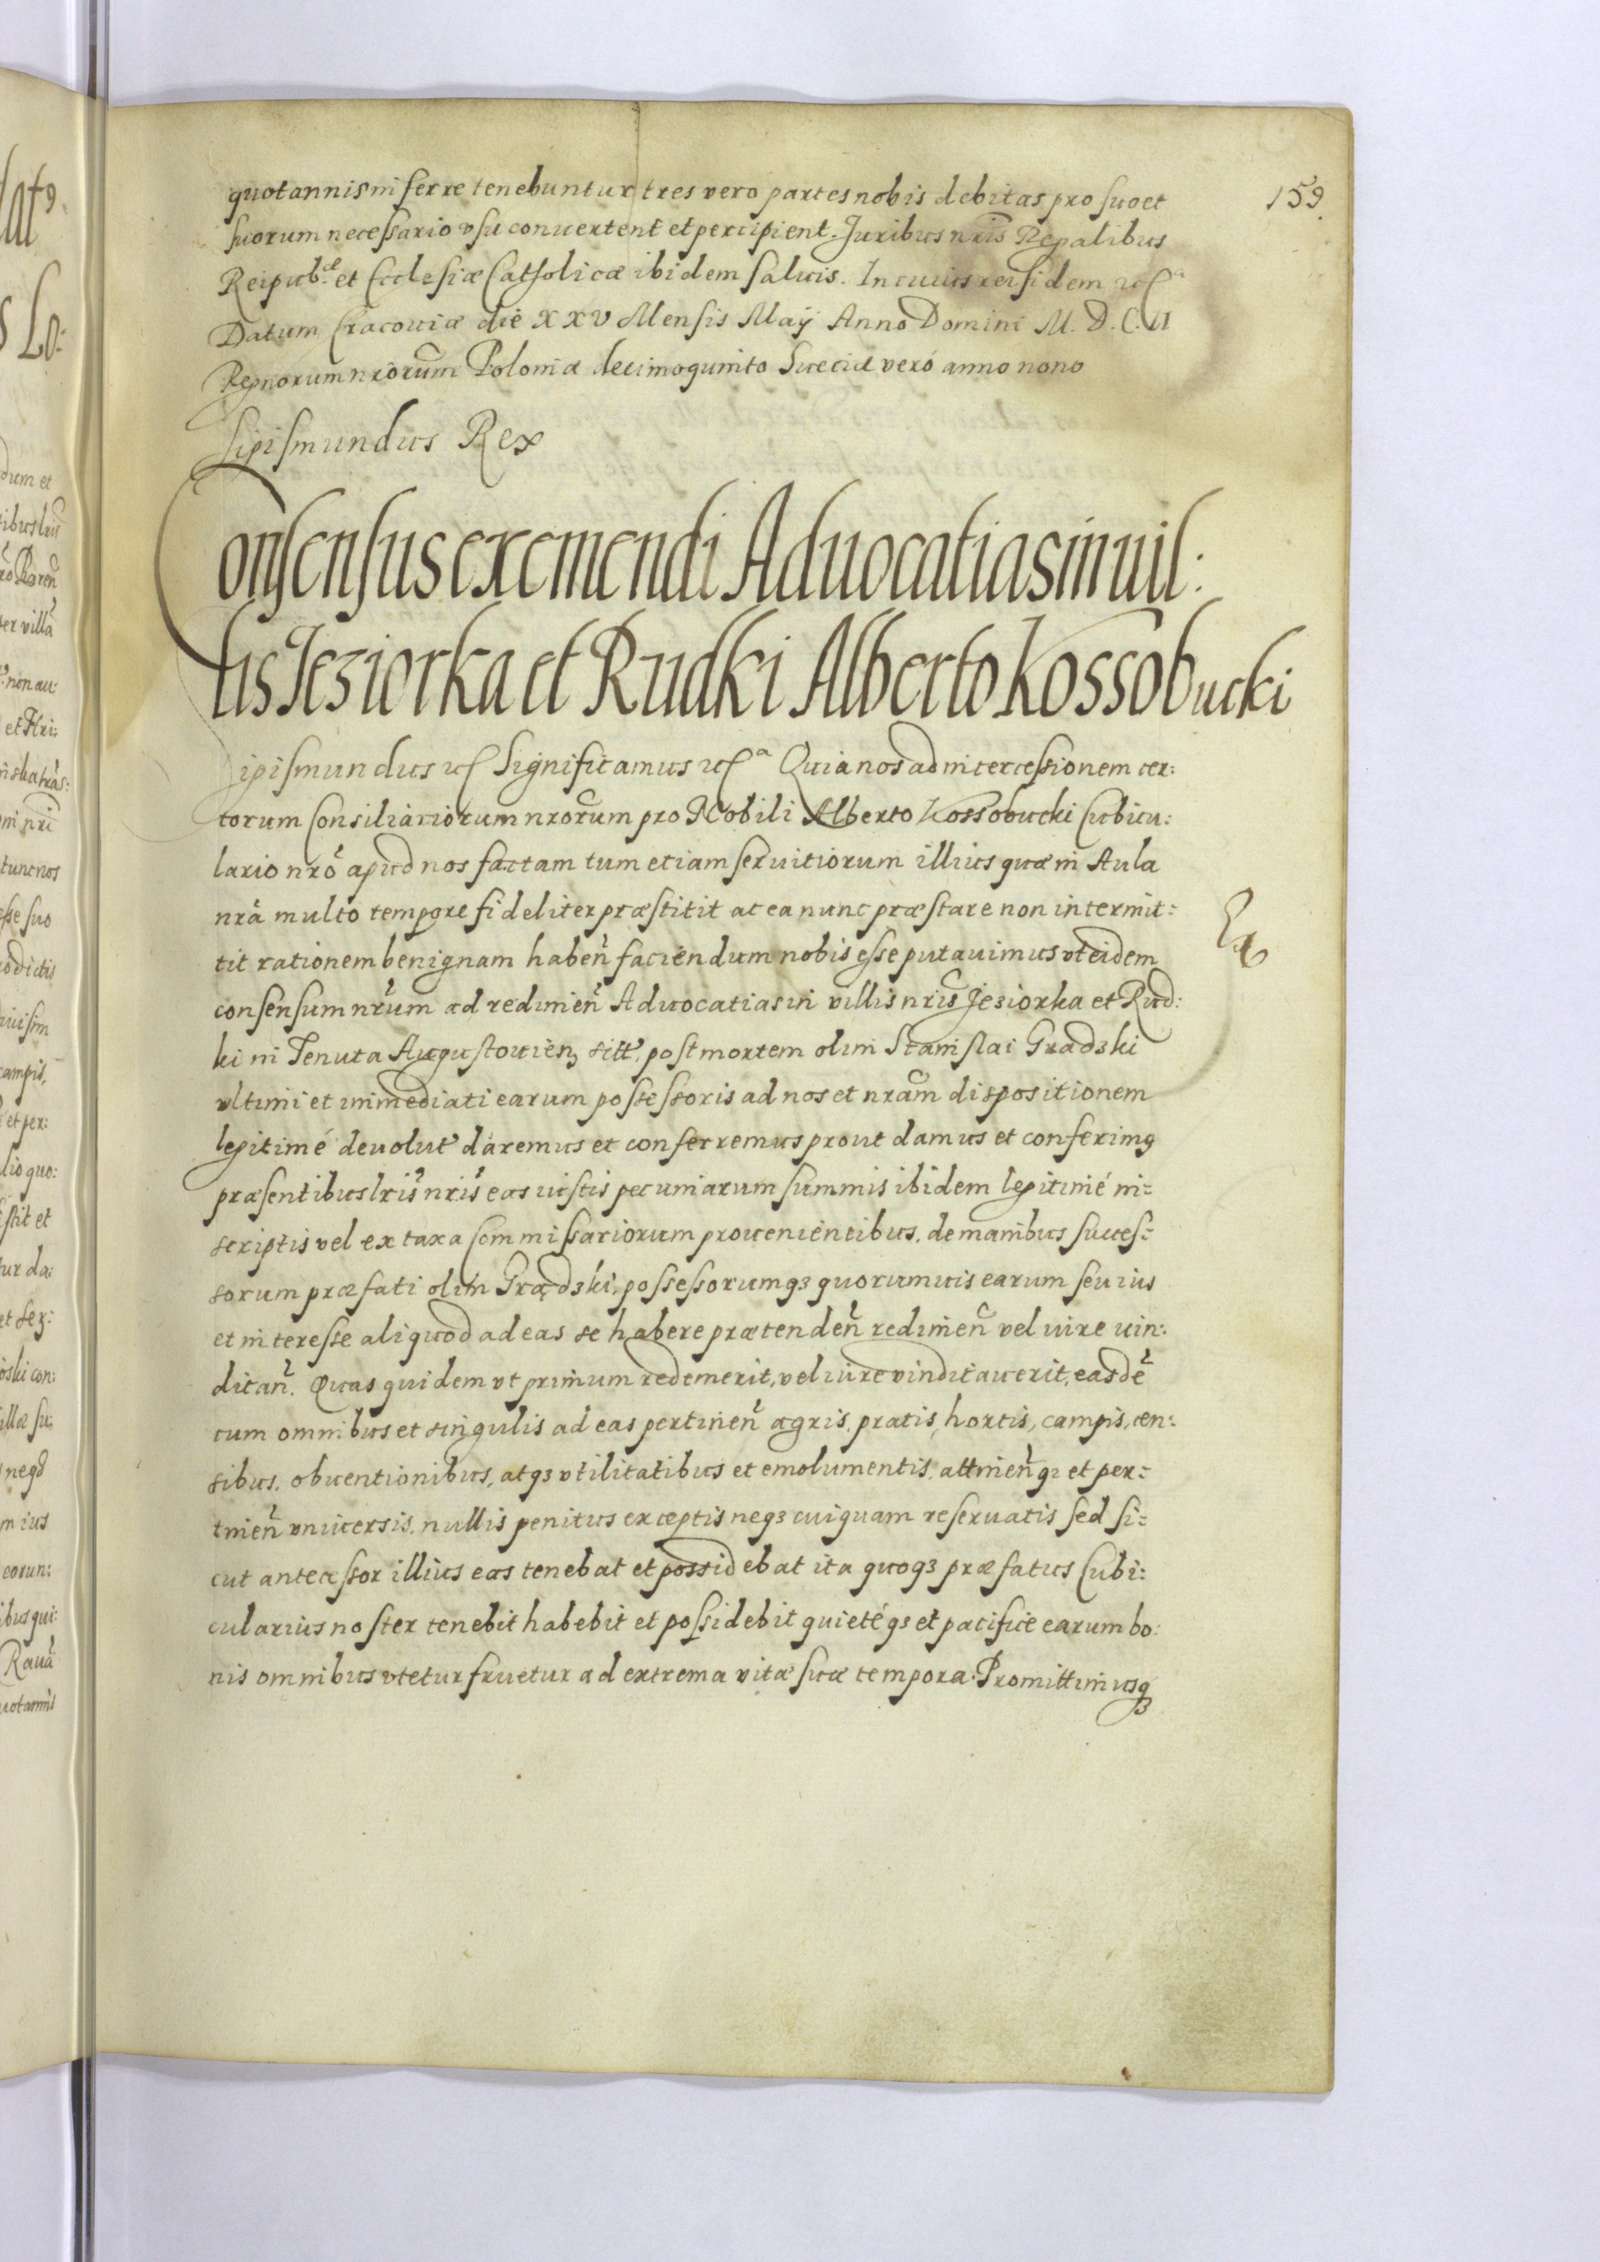 159
quotannis inferre tenebuntur tres vero partes nobis debitas pro suo et
suorum necessario vsu conuertent et percipient. Juribus nris Regalibus
Reipub.ce et Ecclesiæ Catholicæ ibidem saluis. In cuius rei fidem
Datum Cracouiæ die XXV Mensis Maÿ Anno Domini M. D. C. II
Regnorum nrorum Poloniæ decimoquinto Sueciæ veró anno nono
Sigismundus Rex
Consensus exemendi Aduocatias in uil:
lis Jeziorka et Rudki Alberto Kossobucki
Sigismundus Significamus Quia nos ad intercessionem cer:
torum Consiliariorum nrorum pro Nobili Alberto Kossobucki Cubicu:
lario nrõ apud nos factam tum etiam seruitiorum illius quæ in Aula
nrã multo tempore fideliter præstitit ac ea nunc præstare non intermit:
tit rationem benignam haben̄ faciendum nobis esse putauimus vt eidem
consensum nrũm ad redimen̄ Aduocatias in villis nris Jeziorka et Rud:
ki in Tenuta Augustouien sitt. post mortem olim Stanislai Gradzki
vltimi et immediati earum possessoris ad nos et nram dispositionem
legitimé deuolut daremus et conferremus prout damus et conferimq
præsentibus lris nris eas iustis pecuniarum summis ibidem legitimé in:
scriptis vel ex taxa Commissariorum prouenientibus. de manibus succes:
sorum præfati olim Grądzki, possessorumq3 quorumuis earum seu ius
et interesse aliquod ad eas se habere prætenden̄ redimen̄ vel iure uin:
dican̄. Quas quidem vt primum redemerit, vel iure vindicauerit, easdẽ
cum omnibus et singulis ad eas pertinen̄ agris, pratis, hortis, campis, cen:
sibus, obuentionibus, atq3 vtilitatibus et emolumentis, attinen̄q3 et per:
tinen̄ vniuersis, nullis penitus exceptis neq3 cuiquam reseruatis sed si:
cut antecessor illius eas tenebat et possidebat ita quoq3 præfatus Cubi:
cularius noster tenebit habebit et possidebit quietéq3 et pacifice earum bo:
nis omnibus vtetur fruetur ad extrema vitæ suæ tempora. Promittimusq3